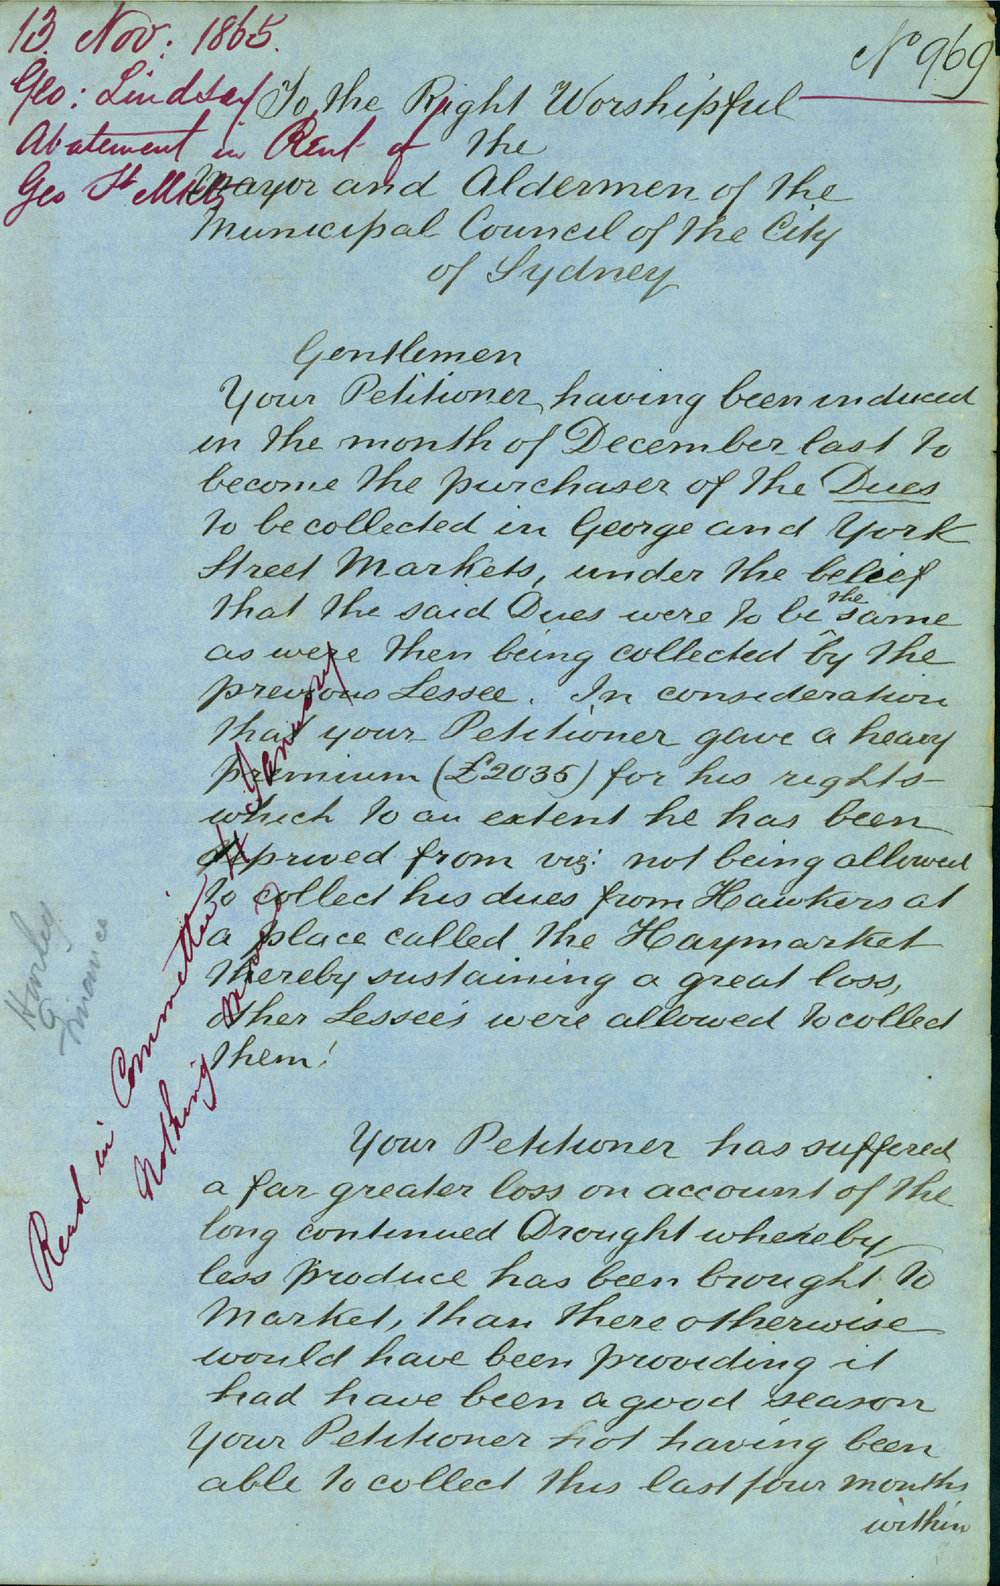 13. Nov. 1865.
No 969
Geo: Lindsay
Abatement in Rent of
Geo St Mkts
To the Right Worshipful
The
Mayor and Aldermen of the
Municipal Council of the City
of Sydney
Gentlemen
Your Petitioner having been induced
in the month of December last to
become the purchaser of the Dues
to be collected in George and York
Street Markets, under the belief
that the said Dues were to be the same
as were then being collected by the
previous Lessee. In consideration
that your Petitioner gave a heavy
premium (£2035) for his rights
which to an extent he has been
deprived from viz: not being allowed
to collect his dues from Hawkers at
a place called the Haymarket
thereby sustaining a great loss,
other Lessee's were allowed to collect
them!
Your Petitioner has suffered
a far greater loss on account of the
long continued Drought whereby
less produce has been brought to
Market, than there otherwise
would have been providing it
had have been a good season
Your Petitioner not having been
able to collect this last four months
within
Read in Committee 4 January
Nothing
Finance